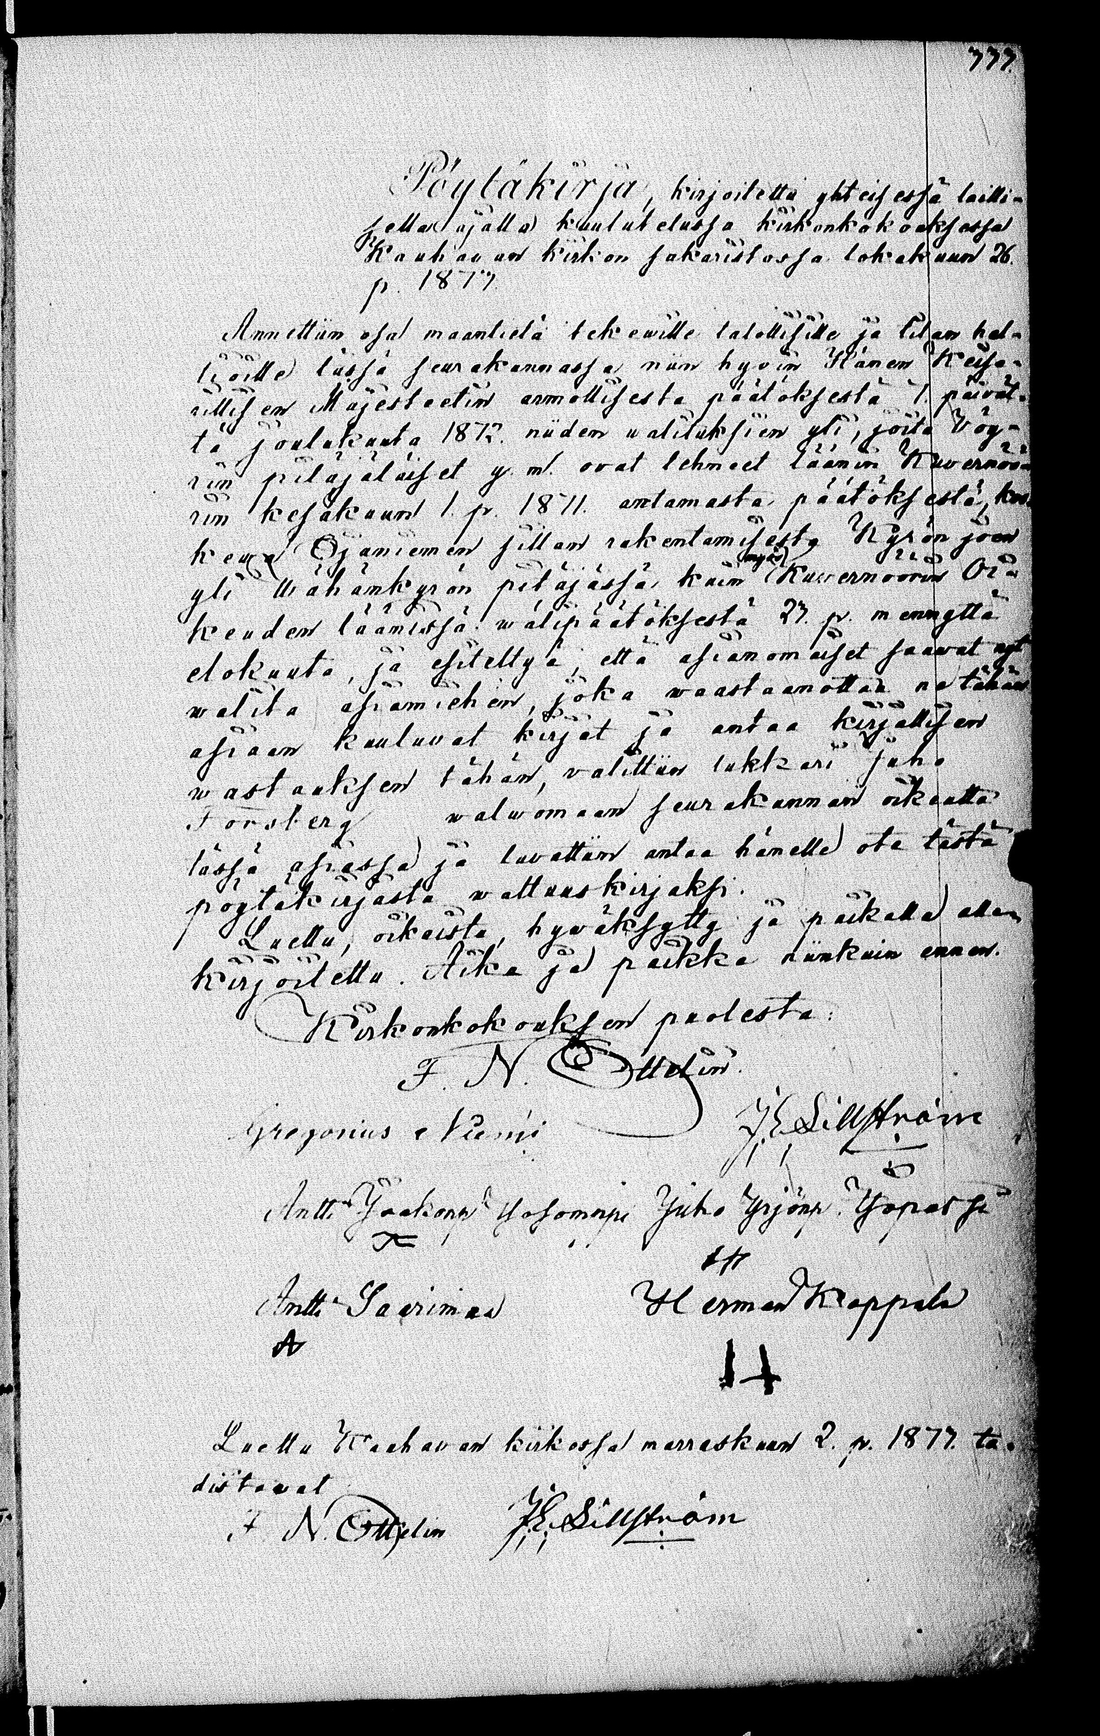 777.
Pöytäkirja, kirjoitettu yhteisessä lailli-
sella ajalla kuulutetussa kirkonkokouksessa
Kauhavan kirkon sakaristossa lokakuun 26.
p. 1877.
Annettiin osa maantietä tekewille talollisille ja tilan hal-
tijoille tässä seurakunnassa niin hyvin Hänen Keisa-
rillisen Majesteetin armollisesta päätöksestä 7. päiväl-
tä joulukuuta 1872. niiden walituksien yli, joita Vöy-
rin pitäjäläiset y. m. ovat tehneet läänin Kuvernöö-
rin kesäkuun 1. p. 1871. antamasta päätöksestä, kos-
kewa Ojaniemen sillan rakentamisesta Kyrönjoen
yli Wähänkyrön pitäjässä, kuin myös Kuvernöörin Oi-
keuden läänissä wälipäätöksestä 27. p. mennyttä
elokuuta, ja esiteltyä, että asianomaiset saawat nyt
walita asiamiehen, joka waastaanottaa ne tähän
asiaan kuuluvat kirjat ja antaa kirjallisen
wastauksen tähän, valittiin lukkari Juho
Forsberg walwomaan seurakunnan oikeutta
tässä asiassa ja luvattiin antaa hänelle ote tästä
pöytäkirjasta waltuuskirjaksi.
Luettu, oikaistu, hyväksytty ja paikalla allen-
kirjoitettu. Aika ja paikka niinkuin ennen.
Kirkonkokouksen puolesta:
F. N. Ottelin.
Gregorius Niemi J. E. Sillström
Antti Jaakonp. Juho Yrjönp.
Antti Saarimaa Herman Koppala
A
Luettu Kauhavan kirkossa marraskuun 2. p. 1877. to-
distavat
F. N. Ottelin J. E. Sillström